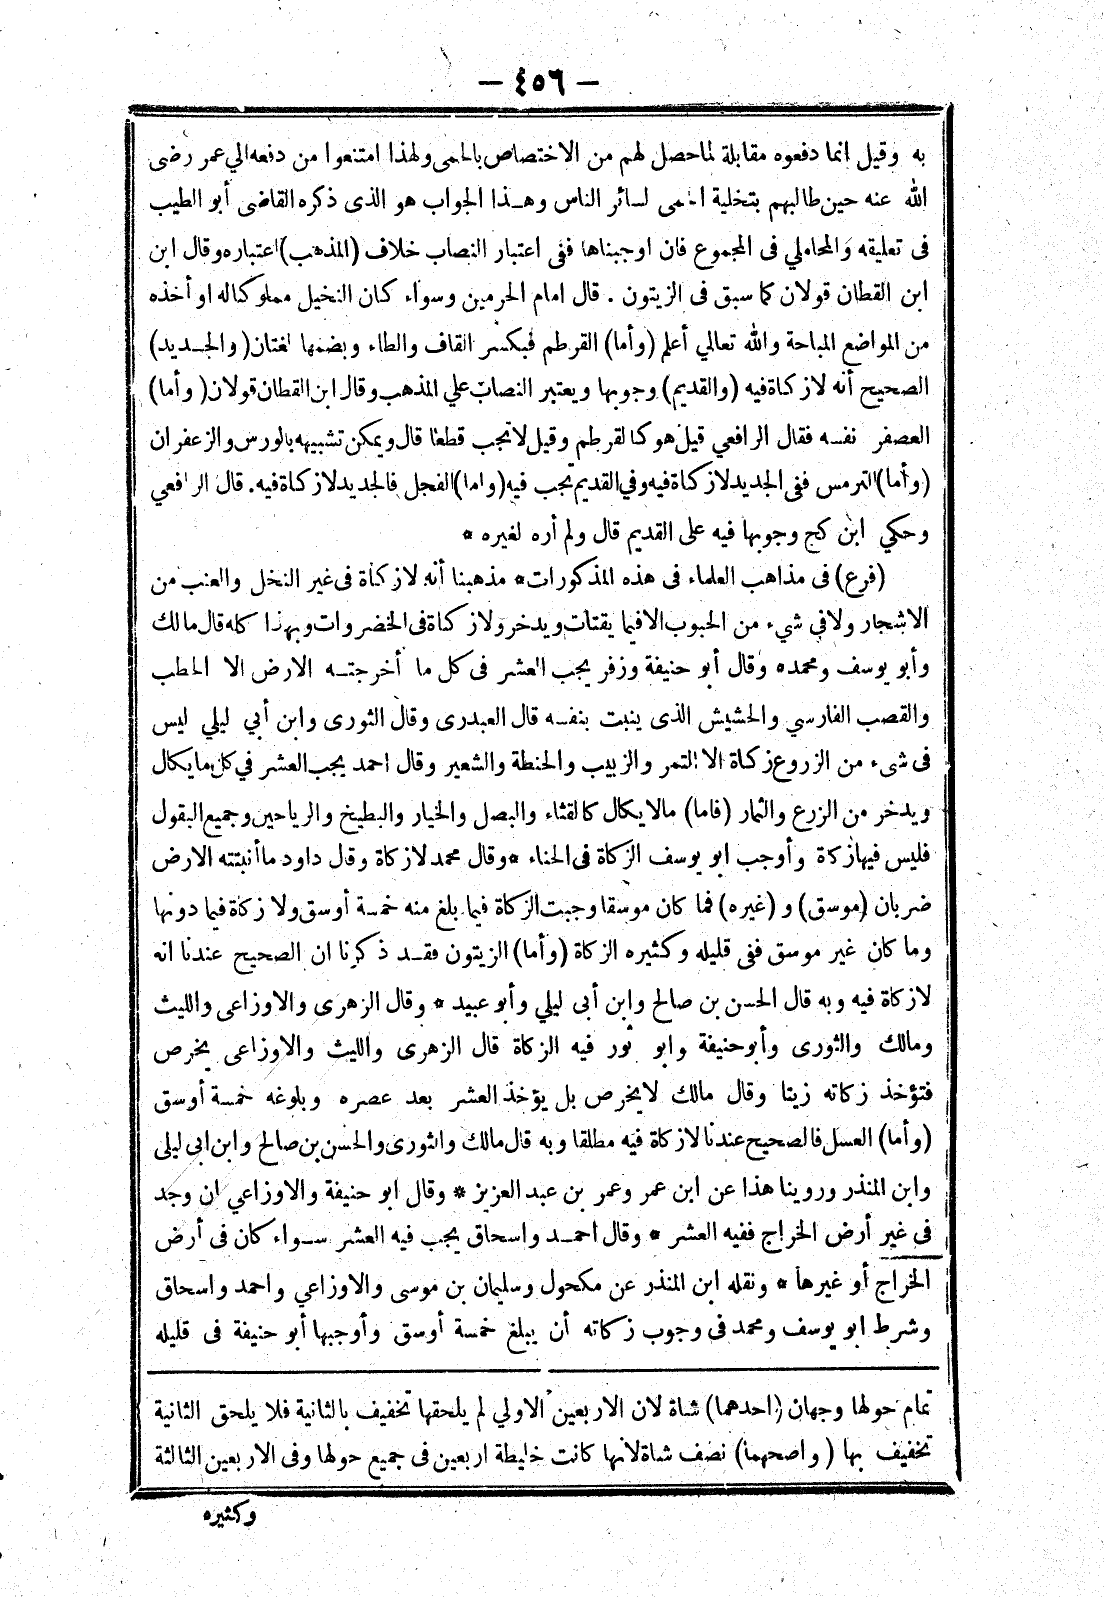 — ٤٥٦ —
به وقيل انما دفعوه مقابلة لما حصل لهم من الاختصاص بالحمى ولهذا امتنعوا من دفعه الي عمر رضى
الله عنه حين طالبهم بتخلية الحمى لسائر الناس وهـذا الجواب هو الذى ذكره القاضى أبو الطيب
فى تعليقه والمحاملي فى المجموع فان اوجبناها ففى اعتبار النصاب خلاف (المذهب) اعتباره وقال ابن
ابن القطان قولان كما سبق فى الزيتون . قال امام الحرمين وسواء كان النخيل مملوكا له او أخذه
من المواضع المباحة والله تعالي أعلم (وأما) القرطم فبكسر القاف والطاء وبضمها لغتان (والجـديد)
الصحيح أنه لا زكاة فيه (والقديم) وجوبها ويعتبر النصاب علي المذهب وقال ابن القطان قولان (وأما)
العصفر نفسه فقال الرافعي قيل هو كالقرطم وقيل لا تجب قطعا قال ويمكن تشبيهه بالورس والزعفران
(وأما) الترمس ففى الجديد لا زكاة فيه وفي القديم تجب فيه (واما) الفجل فالجديد لا زكاة فيه. قال الرافعي
وحكي ابن كج وجوبها فيه على القديم قال ولم أره لغيره *
(فرع) فى مذاهب العلماء فى هذه المذكورات * مذهبنا أنه لا زكاة فى غير النخل والعنب من
الاشجار ولا في شيء من الحبوب الا فيما يقتات ويدخر ولا زكاة فى الخضروات وبهذا كله قال مالك
وأبو يوسف ومحمده وقال أبو حنيفة وزفر يجب العشر فى كل ما أخرجتـه الارض الا الحطب
والقصب الفارسي والحشيش الذى ينبت بنفسه قال العبدرى وقال الثورى وابن أبي ليلي ليس
فى شىء من الزروع زكاة الا التمر والزبيب والحنطة والشعير وقال احمد يجب العشر في كل ما يكال
ويدخر من الزرع والثمار (فاما) مالا يكال كالقثاء والبصل والخيار والبطيخ والرياحين وجميع البقول
فليس فيها زكاة وأوجب ابو يوسف الزكاة فى الحناء * وقال محمد لا زكاة وقال داود ما أنبتته الارض
ضربان (موسق) و (غيره) فما كان موسقا وجبت الزكاة فيما بلغ منه خمسة أوسق ولا زكاة فيما دونها
وما كان غير موسق ففى قليله وكثيره الزكاة (وأما) الزيتون فقـد ذكرنا ان الصحيح عندنا انه
لا زكاة فيه وبه قال الحسن بن صالح وابن أبى ليلي وأبو عبيد * وقال الزهرى والاوزاعى والليث
ومالك والثورى وأبو حنيفة وابو ثور فيه الزكاة قال الزهرى والليث والاوزاعى يخرص
فتؤخذ زكاته زيتا وقال مالك لا يخرص بل يؤخذ العشر بعد عصره وبلوغه خمسة أوسق
(وأما) العسل فالصحيح عندنا لا زكاة فيه مطلقا وبه قال مالك والثورى والحسن بن صالح وابن ابى ليلى
وابن المنذر وروينا هذا عن ابن عمر وعمر بن عبد العزيز * وقال ابو حنيفة والاوزاعي ان وجد
فى غير أرض الخراج ففيه العشر * وقال احمـد واسحاق يجب فيه العشر سـواء كان فى أرض
الخراج أو غيرها * ونقله ابن المنذر عن مكحول وسليمان بن موسى والاوزاعي واحمد واسحاق
وشرط ابو يوسف ومحمد فى وجوب زكاته أن يبلغ خمسة أوسق وأوجبها أبو حنيفة فى قليله
تمام حولها وجهان (احدهما) شاة لان الاربعين الاولي لم يلحقها تخفيف بالثانية فلا يلحق الثانية
تخفيف بها (واصحهما) نصف شاة لانها كانت خليطة اربعين فى جميع حولها وفى الاربعين الثالثة
وكثيره